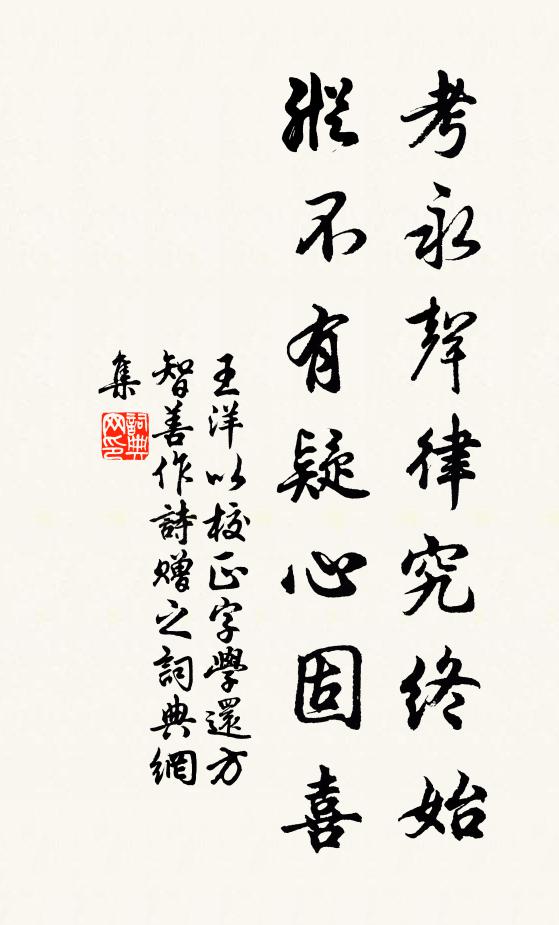 考永聲律究終始
縱不有疑心固喜
王洋以校正字學還方
智善作詩赠之詞典網
集
詞典
网印